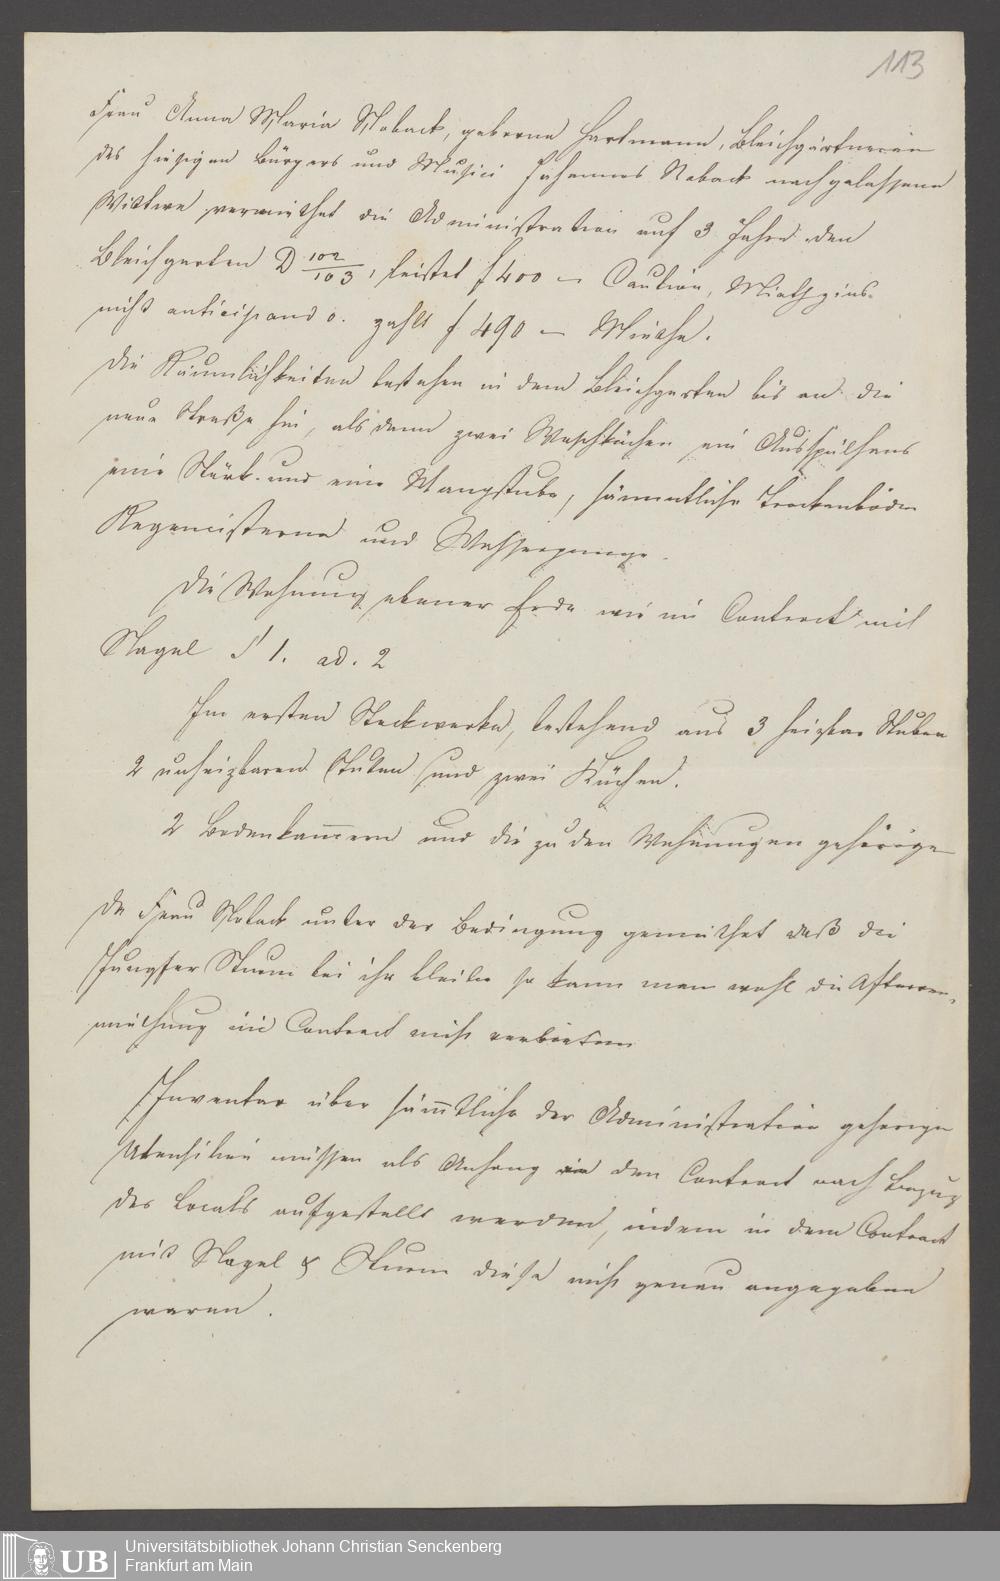 113
Frau Anna Maria Noback, geborne Hartmann, Bleichgärtnerin
des hiesigen Bürgers und Musici Johannes Noback nachgelassene
Wittwe vermiethet die Administration auf 3 Jahre den
Bleichgarten D 102/103, leistet f 400 – Caution, Miethzins
nicht anticipando. zahlt f. 490 – Miethe.
Die Räumlichkeiten bestehen in dem Bleichgarten bis an die
neue Straße hin, alsdann zwei Waschküchen ein Ausspülhaus
eine Stärk- und eine Mangstube, sämmtliche Trockenböden
Regencisterne und Wasserpumpe.
Die Wohnung ebener Erde wie im Contract mit
Nagel § 1. ad. 2
Im ersten Stockwerke, bestehend aus 3 heizbar Stuben
2 unheizbaren Stuben und zwei Küchen.
2 Bodenkammern und die zu den Wohnungen gehörige
Da Frau Noback unter der Bedingung gemiethet daß die
Jungfer Sturm bei ihr bleibe so kann man wohl die Afterver-
miethung im Contract nicht verbieten
Inventar über sämmtliche der Administration gehörige
Utensilien müssen als Anhang in den Contract nach Bezug
des Locals aufgestellt werden, indem in dem Contract
mit Nagel & Sturm diese nicht genau angegeben
waren.
UB
Universitätsbibliothek Johann Christian Senckenberg
Frankfurt am Main